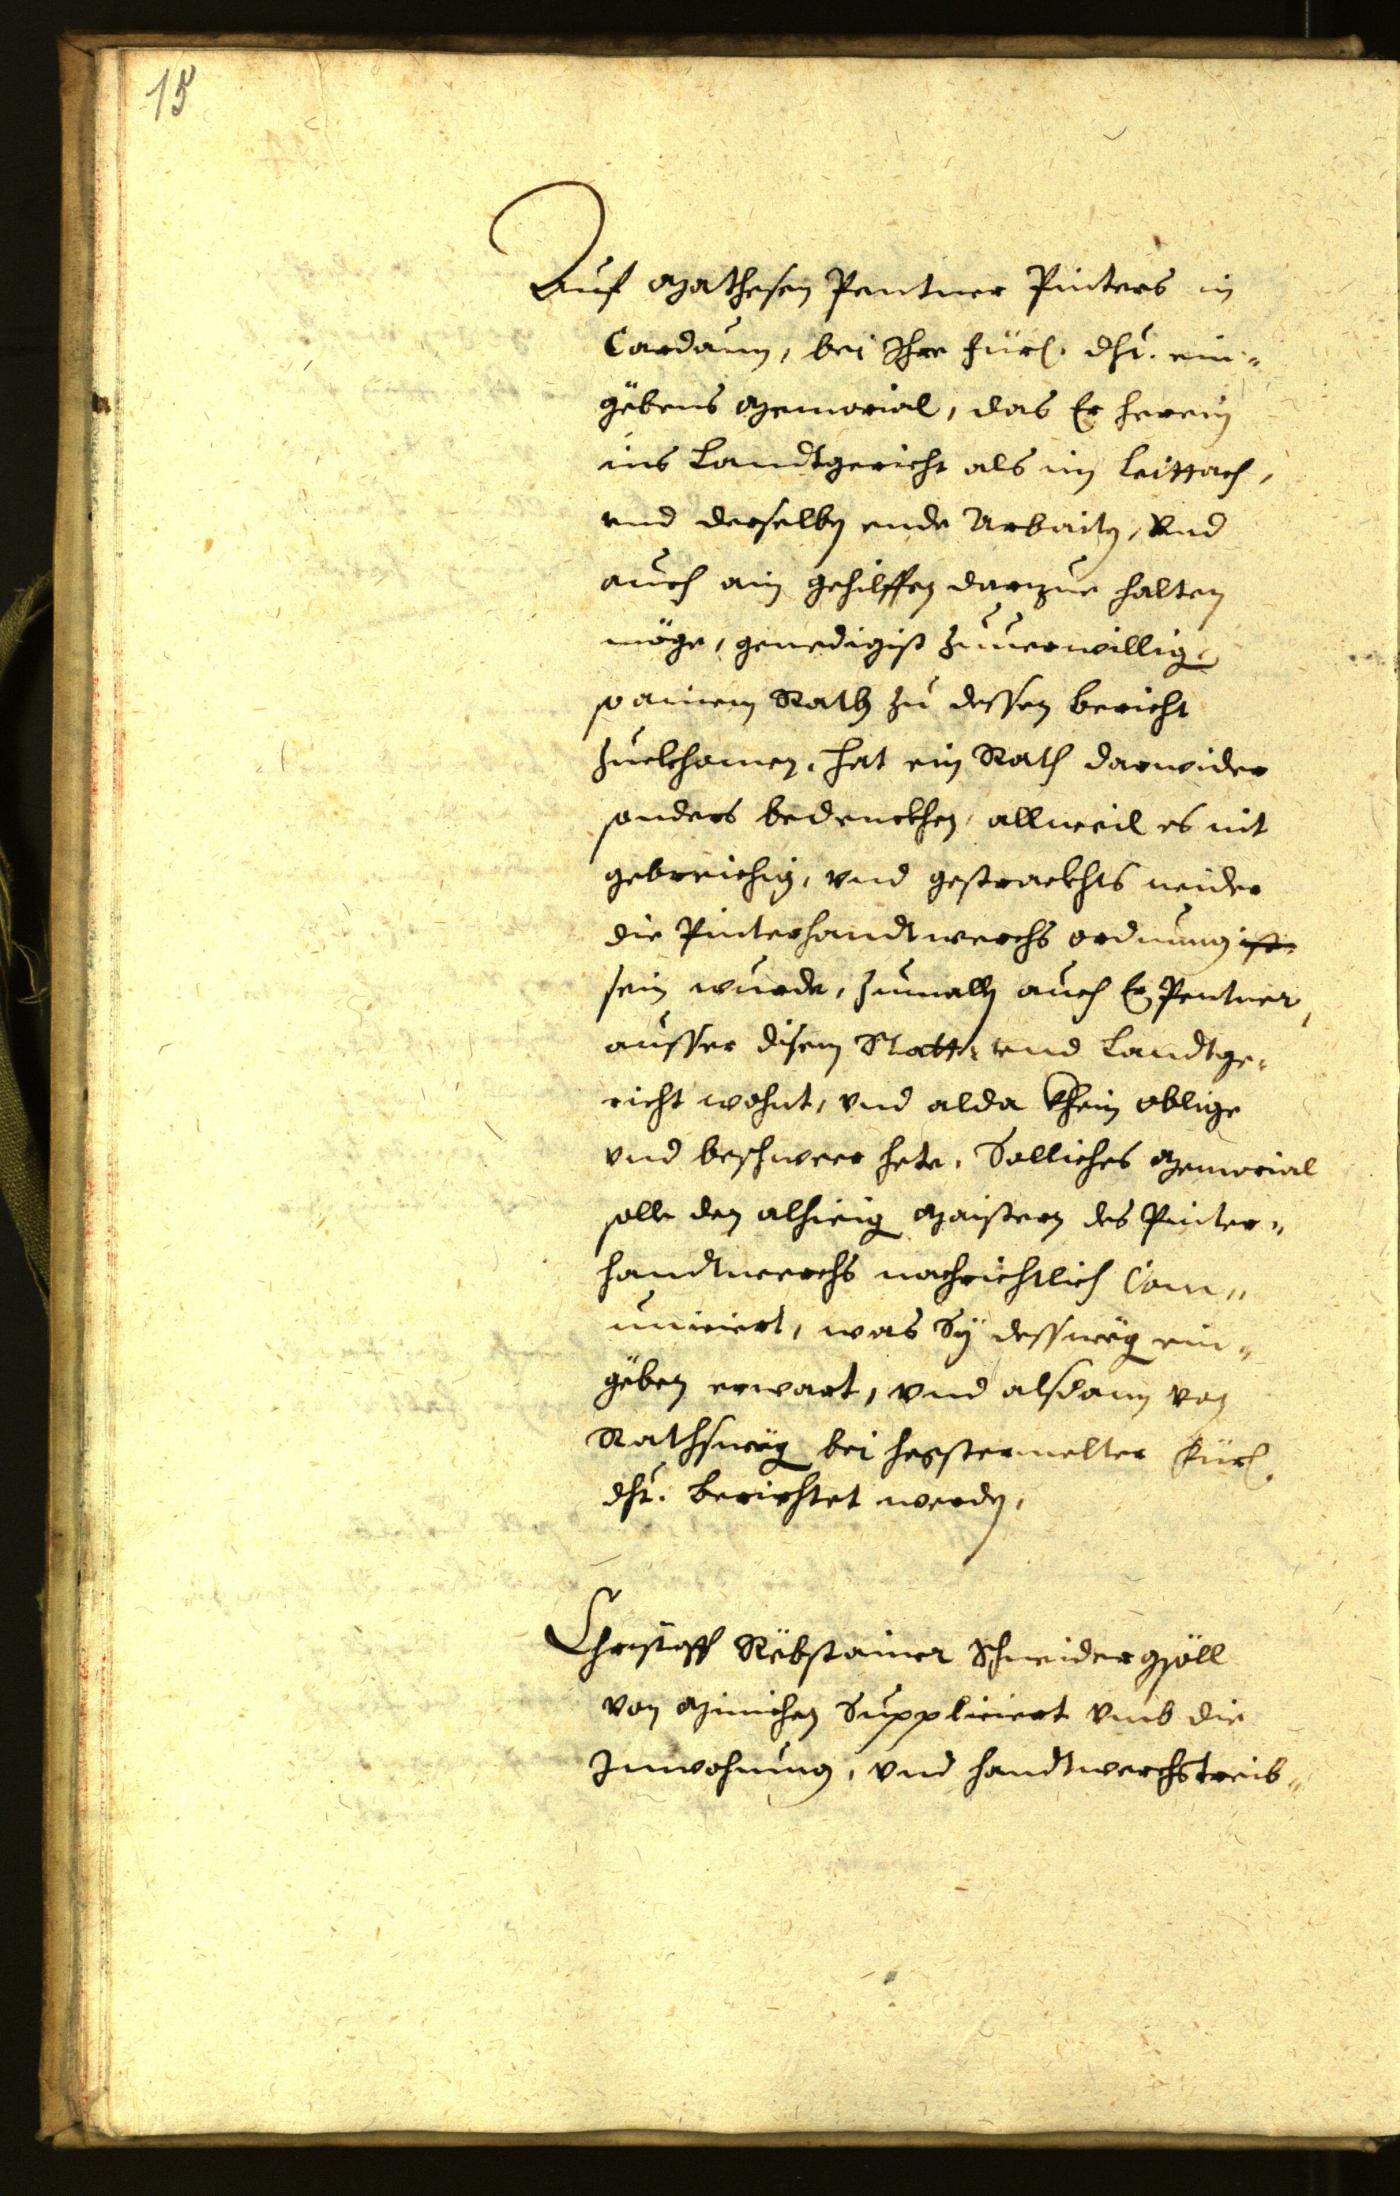 15
Auf Mathesen Pentner Pinters in
Cardaun, bei Ihre fürl. dht. ein„
gebens Memorial, das Er herein
ins Landtgericht als im Leittach,
vnd derselben ende Arbaiten, Vnd
auch ain gehilffen darzue halten
möge, genedigist zuuerwilligen
so ainem Rath zu dessen bericht
zuekhomen, hat ein Rath darwider
sonders bedenckhen, allweil es nit
gebreichig, vnd gestrackhts wider
die Pinterhandtwerchs ordnung ist
sein wurde, zumalln auch Er Pentner,
ausser disem Statt: vnd Landtge„
richt wohnt, vnd alda khein oblige
vnd beschwer hete, Solliches Memorial
solle den alhieigen Maistern des Pinter„
handtwerchs nachrichtlich Com„
uniciert, was Sÿ desswegen ein„
geben erwart, vnd alsdann von
Rathswegen bei hegstermelter Fürl.
dht. berichtet werden,
Christoff Rëbstainer Schneidergsöll
von Minichen Suppliciert vmb die
Inwohnung, vnd handtwerchstreib„